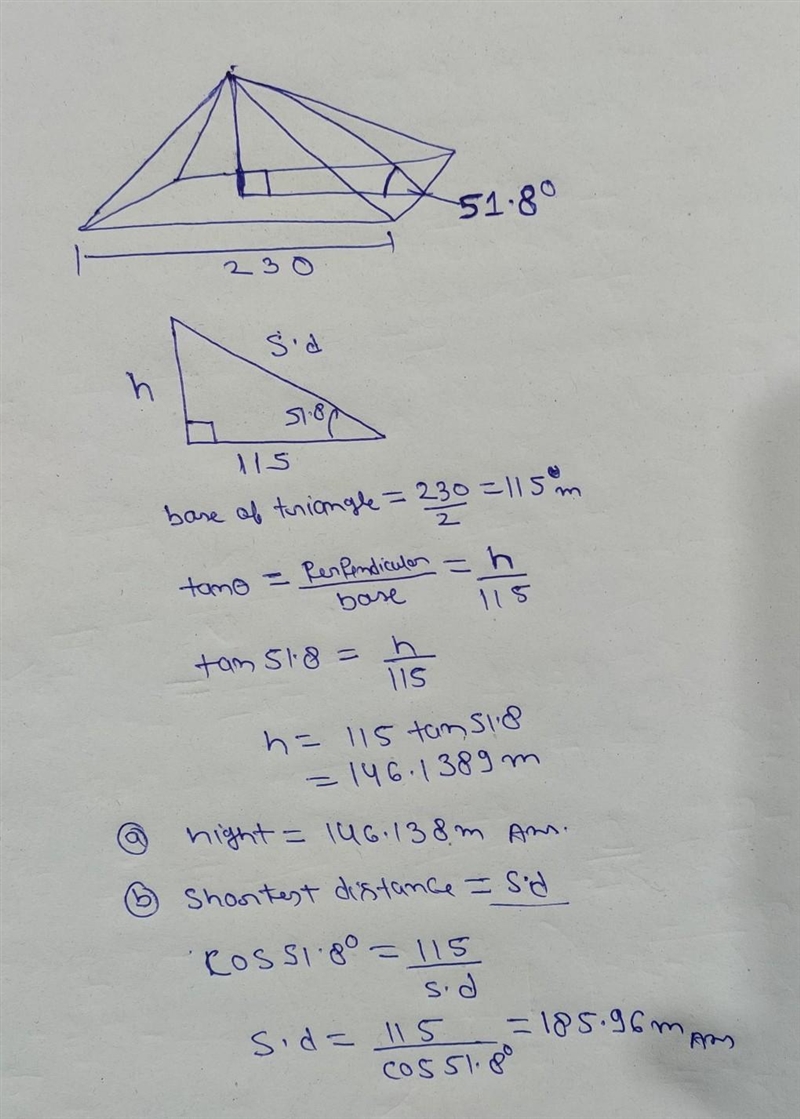 51.8°
230
S.d
h
51.8
115
base of triangle = 230/2 = 115 m
tanθ = Perpendicular/base = h/115
tan 51.8 = h/115
h = 115 tan 51.8
= 146.1389 m
(a) hight = 146.138 m Ans.
(b) Shortest distance = S.d
cos 51.8° = 115/S.d
S.d = 115/cos 51.8° = 185.96 m Ans